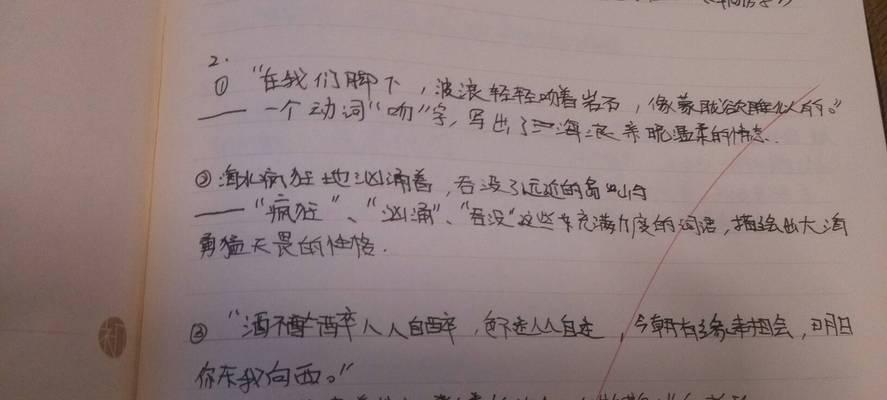 2.
① “在我们脚下，波浪轻轻吻着岩石，像蒙眬欲睡似的。”
—— 一个动词“吻”字，写出了海浪亲昵温柔的情态.
② 海水疯狂地汹涌着，吞没了远近的岛屿
——“疯狂”、“汹涌”、“吞没”这些充满力度的词语，描绘出大海
勇猛无畏的性格.
③ “酒不醉人人自醉，色不迷人人自迷，今朝有缘来相会，明日
你东我向西。”